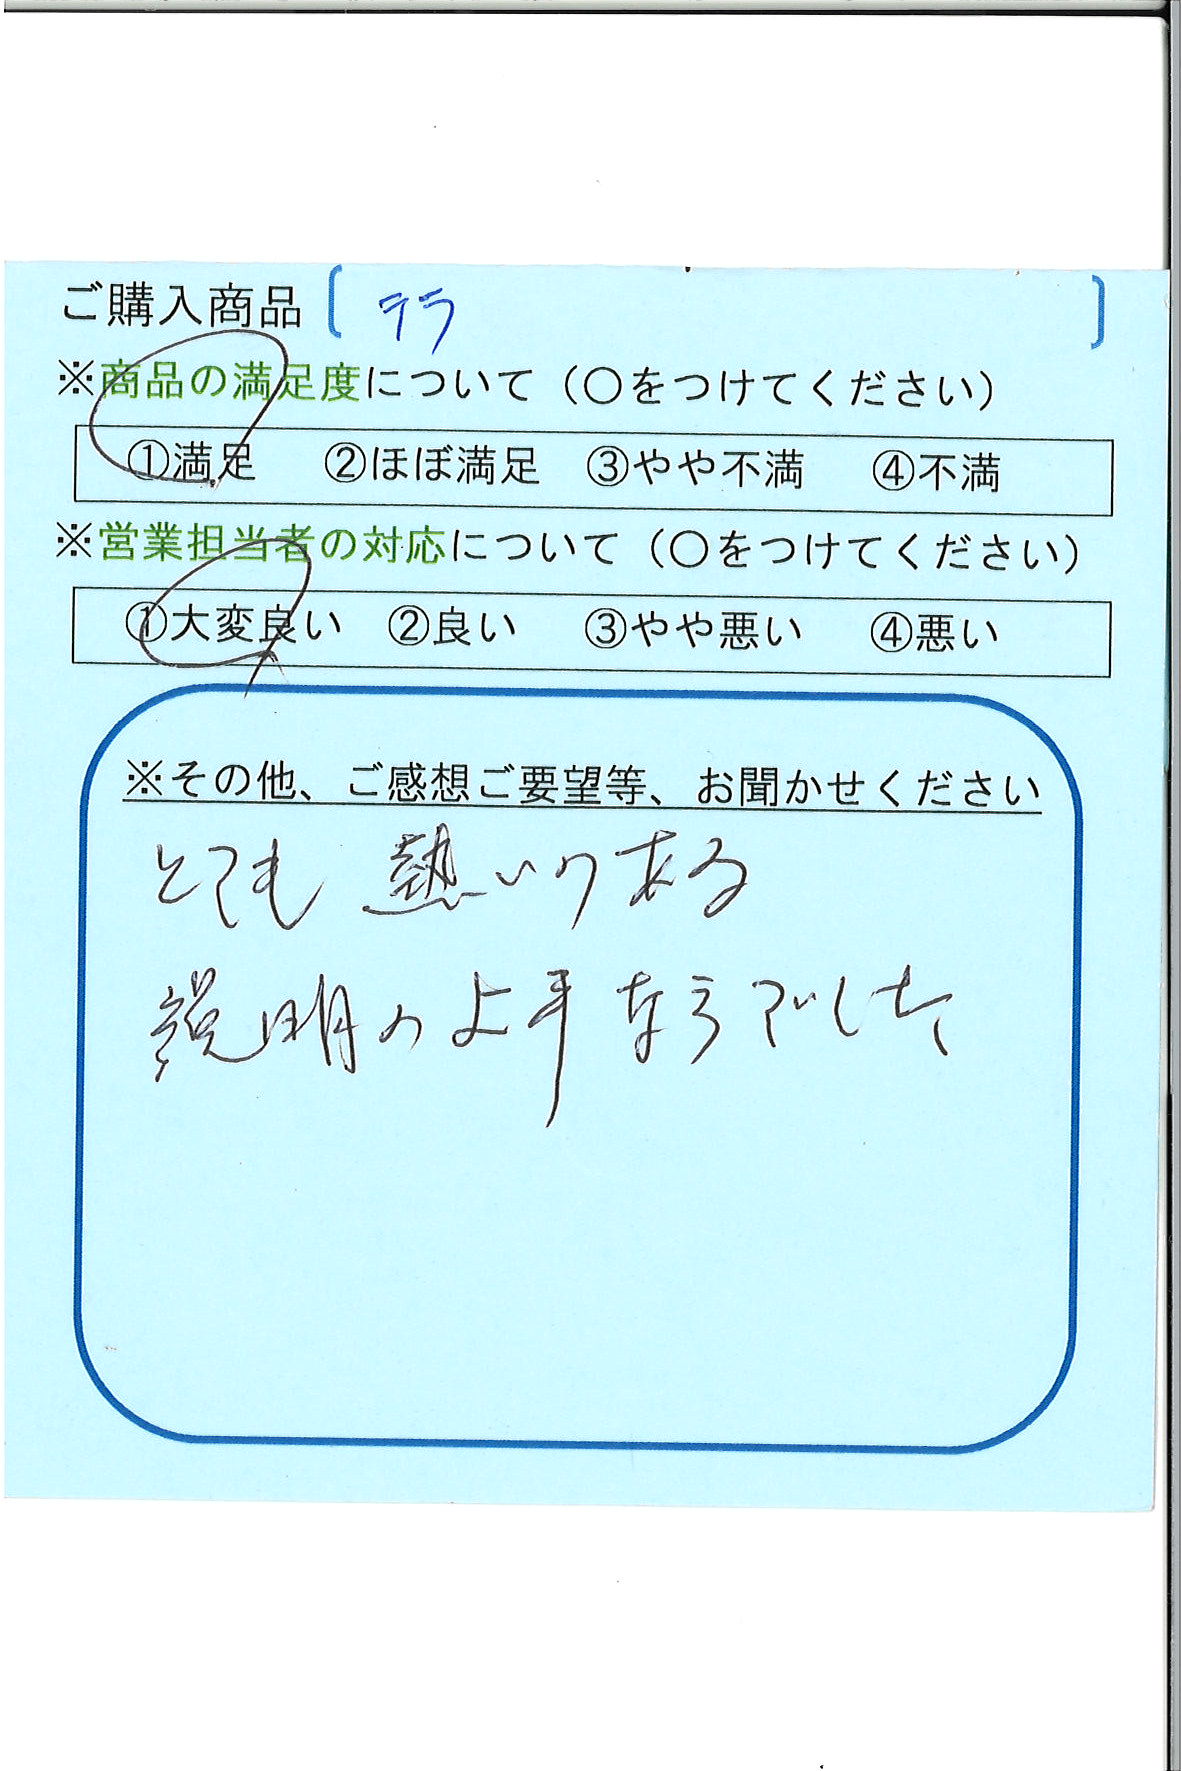 ご購入商品[ テラ ]
※商品の満足度について（〇をつけてください）
①満足 ②ほぼ満足 ③やや不満 ④不満
※営業担当者の対応について（〇をつけてください）
①大変良い ②良い ③やや悪い ④悪い
※その他、ご感想ご要望等、お聞かせください
とても 熱 ある
説明の上手な方でした